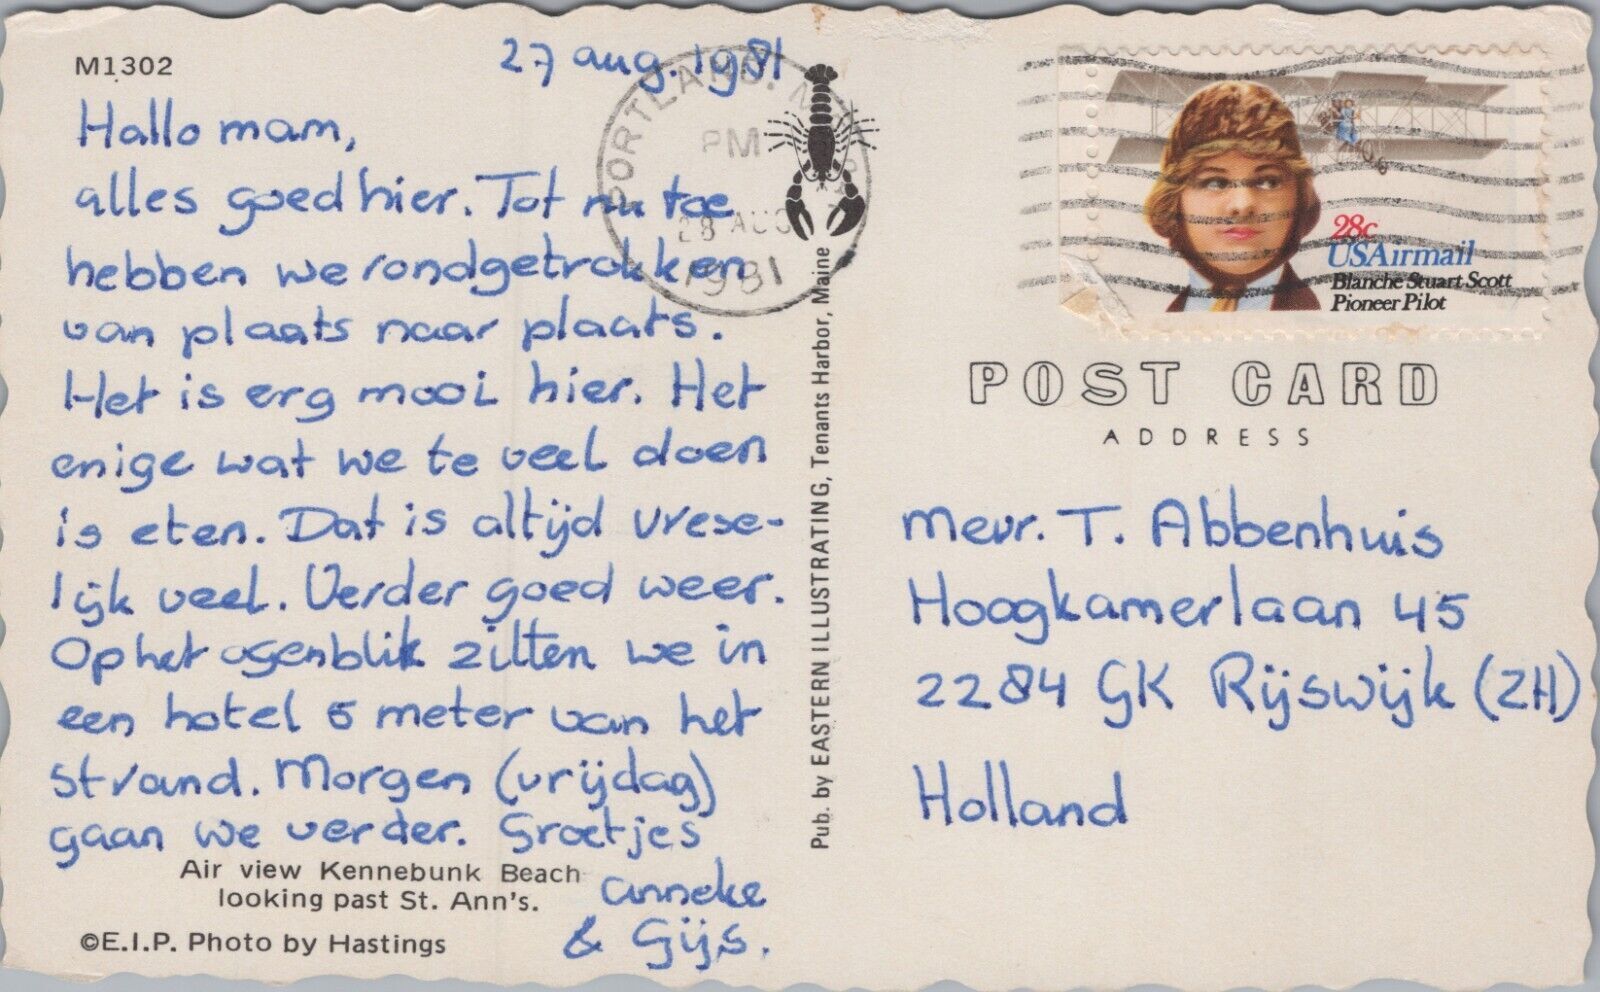 M1302
27 aug. 1981
Hallo mam,
alles goed hier. Tot nu toe
hebben we rondgetrokken
van plaats naar plaats.
Het is erg mooi hier. Het
enige wat we te veel doen
is eten. Dat is altijd vrese-
lijk veel. Verder goed weer.
Op het ogenblik zitten we in
een hotel 5 meter van het
strand. Morgen (vrijdag)
gaan we verder. Groetjes
Anneke
& Gijs.
Air view Kennebunk Beach
looking past St. Ann's.
©E.I.P. Photo by Hastings
Pub. by EASTERN ILLUSTRATING, Tenants Harbor, Maine
PORTLAND,
PM
28 AUG
1981
28c
USAirmail
Blanche Stuart Scott
Pioneer Pilot
POST CARD
ADDRESS
Mevr. T. Abbenhuis
Hoogkamerlaan 45
2284 GK Rijswijk (ZH)
Holland